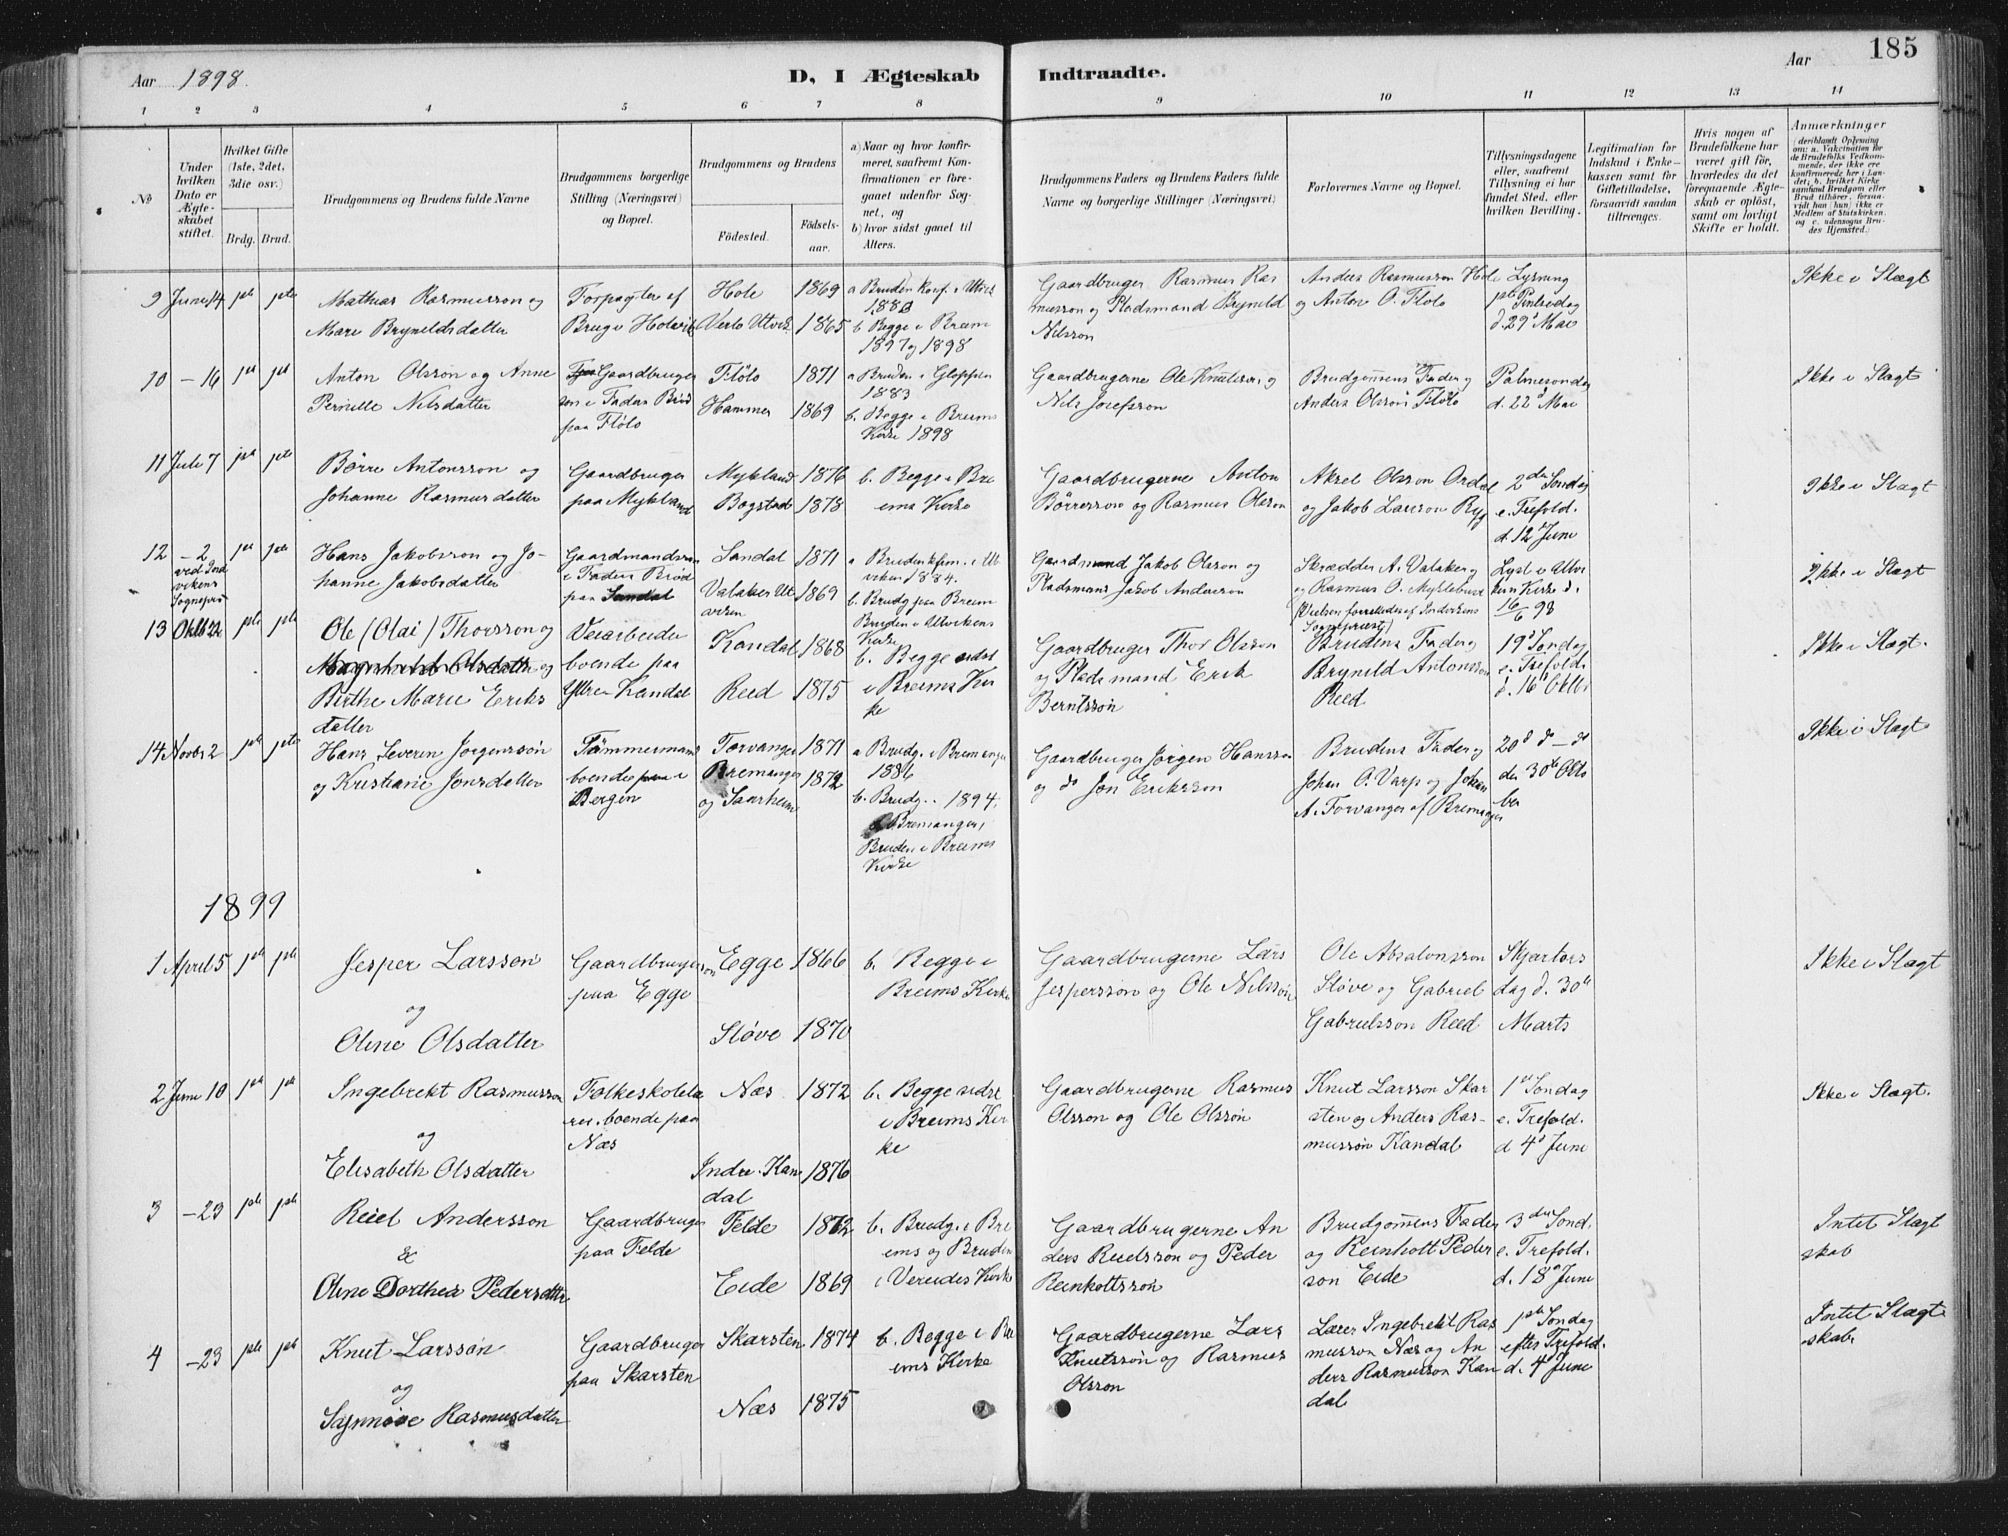 Aar 1898.
D, I Ægteskab Indtraadte.
Aar
185
1 2 3 4 5 6 7 8 9 10 11 12 13 14
No
Under hvilken Dato er Ægteskabet stiftet.
Hvilket Gifte (1ste, 2det, 3die osv.)
Brdg. Brud.
Brudgommens og Brudens fulde Navne
Brudgommens borgerlige Stilling (Næringsvei) og Bopæl.
Brudgommens og Brudens
Fødested.
Fødselsaar.
a) Naar og hvor konfirmeret, saafremt Konfirmationen er foregaaet udenfor Sognet, og
b) hvor sidst gaaet til Alters.
Brudgommens Faders og Brudens Faders fulde Navne og borgerlige Stillinger (Næringsvei)
Forlovernes Navne og Bopæl.
Tillysningsdagene eller, saafremt Tillysning ei har fundet Sted, efter hvilken Bevilling.
Legitimation for Indskud i Enkekassen samt for Giftetilladelse, forsaavidt saadan tiltrænges.
Hvis nogen af Brudefolkene har været gift før, hvorledes da det foregaaende Ægteskab er opløst, samt om lovligt Skifte er holdt.
Anmærkninger
(deriblandt Oplysning om: a. Vaksination for de Brudefolks Vedkommende, der ikke ere konfirmerede her i Landet, b. hvilket Kirkesamfund Brudgom eller Brud tilhører, forsaavidt han (hun) ikke er Medlem af Statskirken, og c. udensogns Brudes Hjemsted.)
9 Juni 14 1ste 1ste
Mathias Rasmusson og
Mari Brynildsdatter
Forpagter af
Brug i Holevik
Hole 1869
Verlo Utvik 1865
a Bruden Konf. i Utvik
1880
b. Begge i Breim
1897 og 1898
Gaardbruger Rasmus Ras
musson og Pladsmand Brynild
Nilsson
Anders Rasmusson Hole
og Anton O. Flolo
Lysning
1ste Pintsedag
d. 29de Mai
Ikke i Slægt
10 – 16 1ste 1ste
Anton Olsson og Anne
Pernille Nilsdatter
Gaardbruger
søn i Faders Brød
paa Flölo
Flölo 1871
Hammer 1869
a Bruden i Gloppen
1883
b. Begge i Breims
Kirke 1898
Gaardbrugerne Ole Knutsson og
Nils Josefsson
Brudgommens Fader og
Anders Olsson Flölo
Palmesøndag
d. 22de Mai
Ikke i Slægt
11 Juli 7 1ste 1ste
Börre Antonsson og
Johanne Rasmusdatter
Gaardbruger
paa Mykland
Mykland 1876
Bogstad 1878
b. Begge i Bre
ems Kirke
Gaardbrugerne Anton
Börresson og Rasmus Olsson
Aksel Olsson Ordal
og Jakob Larsson Ryg
2den Søndag
e. Trefold.
d. 12 Juni
Ikke i Slægt
12 – 2
ved Indvikens Sognepræst
1ste 1ste
Hans Jakobsson og Jo-
hanne Jakobsdatter
Gaardmandssøn
i Faders Brød
paa Sandal
Sandal 1871
Valaker Ut
viken 1869
a Bruden kfm. i Ut
viken 1884.
b. Brudg paa Breim
Bruden i Utvikens
Kirke
Gaardmand Jakob Olsson og
Pladsmans Jakob Anderson
Skrædder A. Valaker og
og Rasmus O. Myklebust
(Vielsen forrettedes af Indvikens
Sognepræst)
Lyst i Utvi
kens Kirke d.
16/6 98
Ikke i Slægt
13 Oktb 22 1ste 1ste
Ole (Olai) Thorsson og
Birthe Marie Eriks
datter
Veiarbeider
boende paa
Yttre Kandal
Kandal 1868
Reed 1875
b. Begge sidst
i Breims Kir
ke
Gaardbruger Thor Olsson
og Pladsmand Erik
Berntssön
Brudens Fader og
Brynild Antonsson
Reed
19de Søndag
e. Trefold.
d. 16 Oktbr
Ikke i Slægt.
14 Novbr 2 1ste 1ste
Hans Severin Jörgenssön
og Kristiane Jonsdatter
Tömmermand
boende i
Bergen
Torvanger 1871
Bremanger 1872
og Sanrheim
a Brudg. i Bremanger
1886
b. Brudg. . 1894,
Bremanger,
Bruden i Breims
Kirke
Gaardbruger Jörgen Hansson
og do Jon Eriksson
Brudens Fader og
Johan O. Varp og Johan
A. Torvanger af Bremanger
20de do – do
den 30te Okto
ber
Ikke i Slægt
1899
1 April 5 1ste 1ste
Jesper Larsson
og
Oline Olsdatter
Gaardbrugersøn
paa Egge
Egge 1866
Slöve 1870
b. Begge i
Breims Kirke
Gaardbrugerne Lars
Jesperssön og Ole Nilssön
Ole Absalonsson
Slöve og Gabriel
Gabrielsson Reed
Skjærtors
dag d. 30te
Marts
Ikke i Slægt
2 Juni 10 1ste 1ste
Ingebrekt Rasmusson
og
Elisabeth Olsdatter
Folkeskolelæ
rer, boende paa
Næs
Næs 1872
Indre Kan
dal 1876
b. Begge sidst
i Breims Kir
ke
Gaardbrugerne Rasmus
Olsson og Ole Olssön
Knut Larsson Skar
sten og Anders Ras-
mussön Kandal
1ste Söndag
e. Trefold.
d 4de Juni
Ikke i Slægt.
3 – 23 1ste 1ste
Reiel Andersson
&
Oline Dorthea Pedersdatter
Gaardbruger
paa Felde
Felde 1872
Eide 1869
b. Brudg. i Bre
ems og Bruden
i Vereides Kirke
Gaardbrugerne An
ders Reielsson og Peder
Reinholtssön
Brudgommens Fader
og Reinholt Peder
son Eide
3die Sönd.
e. Trefold.
d. 18de Juni
Intet Slægt
skab
4 – 23 1ste 1ste
Knut Larssön
og
Synnöve Rasmusdatter
Gaardbruger
paa Skarsten
Skarsten 1874
Næs 1875
b. Begge i Bre
ims Kirke
Gaardbrugerne Lars
Knutssön og Rasmus
Olsson
Lærer Ingebrekt Ras
musson Næs og An
ders Rasmusson Kan
dal
1ste Söndag
efter Trefold.
d. 4de Juni
Intet Slægt
skab